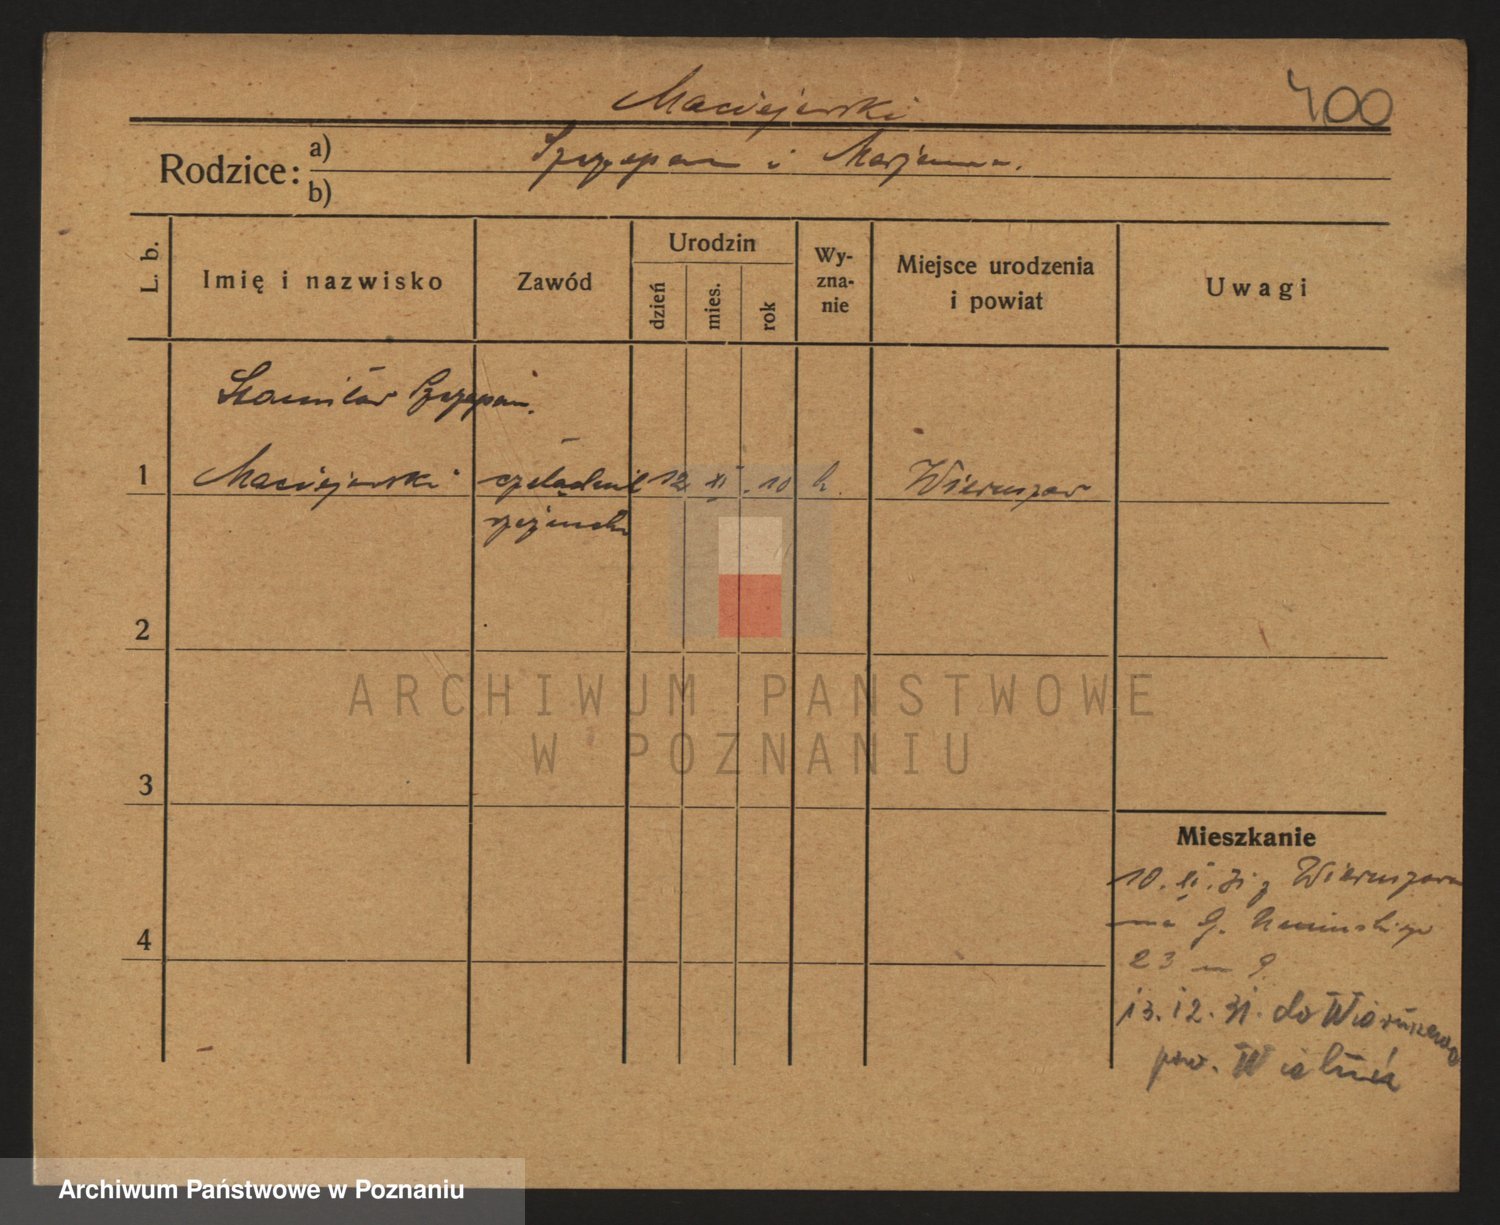 Maciejewski
400
Rodzice: a) Szczepan i Marjanna.
b)
L. b.
Imię i nazwisko
Zawód
Urodzin
dzień
mies.
rok
Wy-
zna-
nie
Miejsce urodzenia
i powiat
Uwagi
Stanisław Szczepan.
1 Maciejewski czeladnik 12 XI. 10 k. Wieruszów
rzeźnicki
2
3
4
ARCHIWUM PAŃSTWOWE
W POZNANIU
Mieszkanie
10. XI. 31 z Wieruszowa
na G.
23 m 9
13. 12. 31. do Wieruszowa
pow. Wieluń
Archiwum Państwowe w Poznaniu